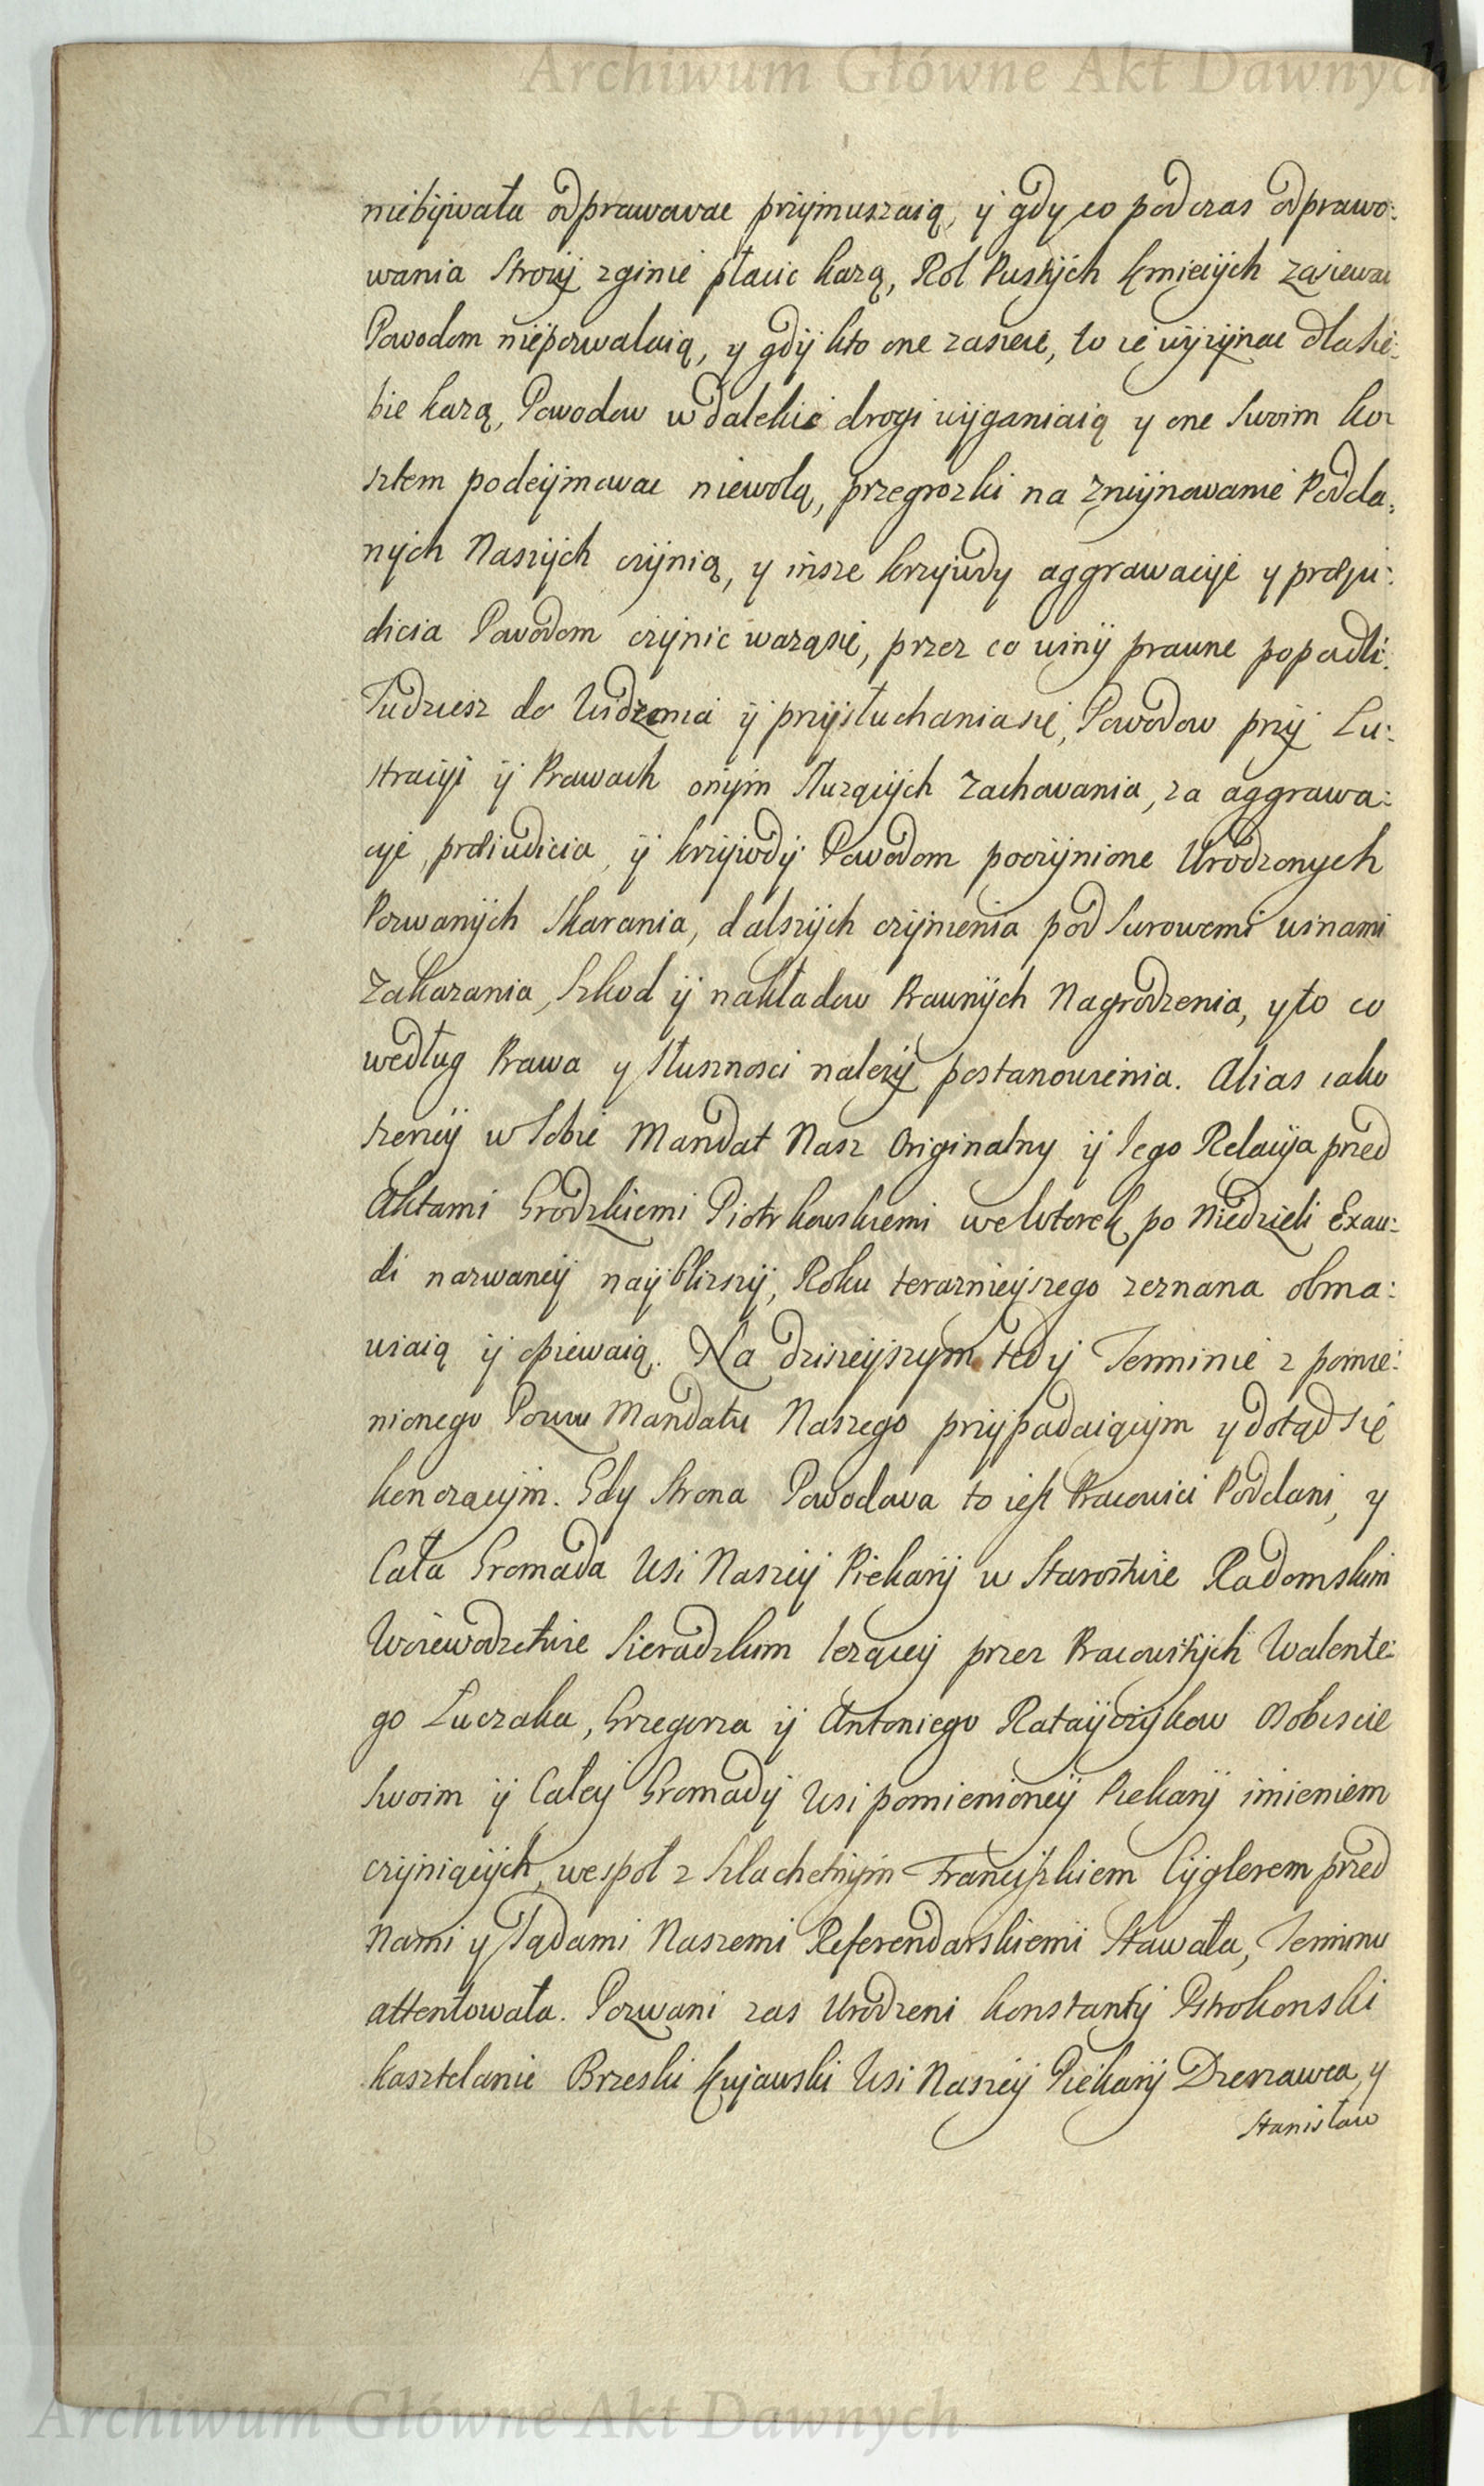 Archiwum Główne Akt Dawnych
niebywała odprawować przymuszaią, y gdy co podczas odprawo:
wania Stroży zginie płacic każą, Rol Pustych kmiecych zasiewać
Powodom niepozwalaią, y gdy kto one zasieie, to ie wyżynac dlasie:
bie każą, Powodow w dalekie drogi wyganiaią y one Swoim ko
sztem podeymowac niewolą, przegrozki na zruynowanie Podda,
nych Naszych czynią, y insze krzywdy aggrawacye y præju:
dicia Powodom czynic ważąsię, przez co winy prawne popadli.
Tudziesz do Widzenia y przysłuchaniasię, Powodow przy Lu:
stracyi y Prawach onym służących zachowania, za aggrawa:
cye, præiudicia, y krzywdy Powodom poczynione Urodzonych
Pozwanych Skarania, dalszych czynienia pod Surowemi winami
Zakazania, Szkod y nakładow Prawnych Nagrodzenia, y to co
według Prawa y Słusznosci należy postanowienia. Alias iako
szerzey w Sobie Mandat Nasz Originalny y Jego Relacya przed
Aktami Grodzkiemi Piotrkowskiemi we Wtorek po Niedzieli Exau:
di nazwaney naybliższy, Roku terazniejszego zeznana obma:
wiaią y opiewaią. Na dzisieyszym tedy Terminie z pomie:
nionego Pozwu Mandatu Naszego przypadaiącym y dotąd się
konczącym. Gdy Strona Powodowa to iest Pracowici Poddani, y
Cała Gromada Wsi Naszey Piekary w Starostwie Radomskim
Woiewodztwie Sieradzkim leżącey przez Pracowitych Walente:
go Łuczaka, Grzegorza y Antoniego Rataijczykow osobiscie
Swoim y Całey Gromady Wsi pomienioney Piekary imieniem
czyniących, wespoł z Szlachetnym Franciszkiem Cyglerem przed
Nami y Sądami Naszemi Referendarskiemi Stawała, Terminu
attentowała. Pozwani zas Urodzeni Konstanty Pstrokonski
Kasztelanic Brzeski Kujawski Wsi Naszey Piekary Dzerzawca, y
Stanisław
Archiwum Główne Akt Dawnych